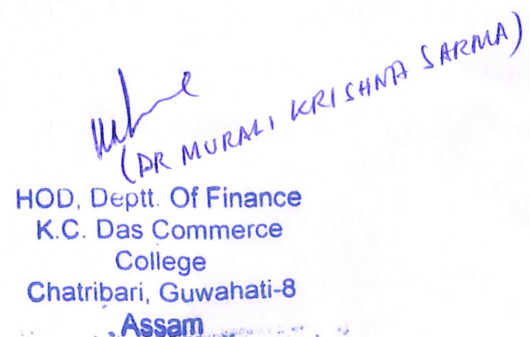 (DR MURALI KRISHNA SARMA)
HOD, Deptt. Of Finance
K.C. Das Commerce
College
Chatribari, Guwahati-8
Assam